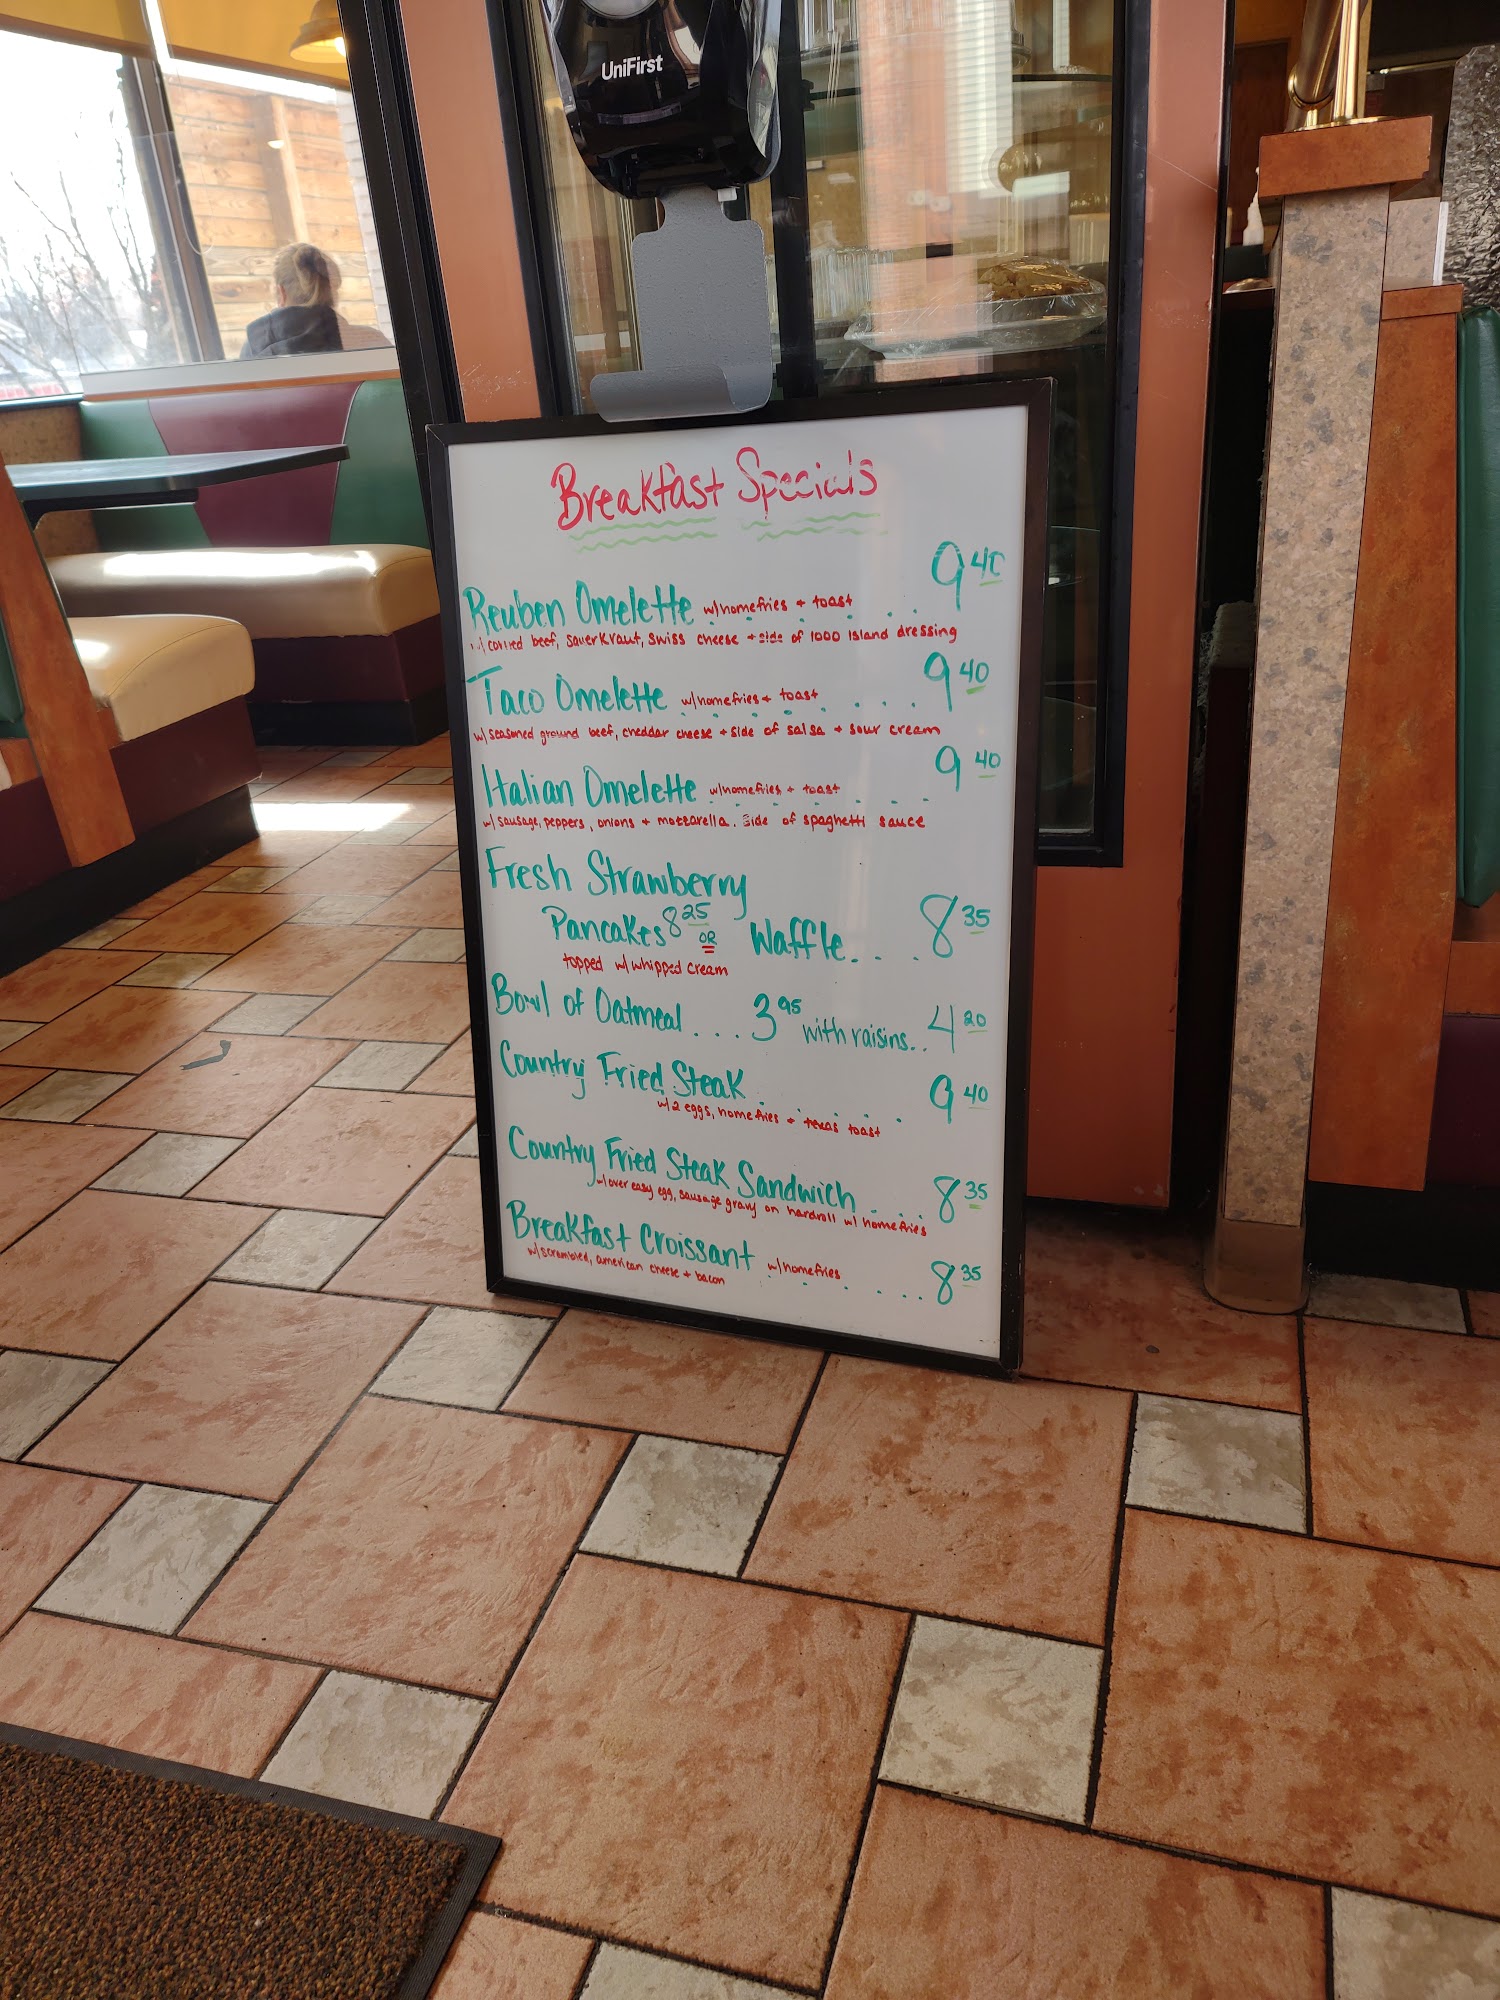 UniFirst
Breakfast Specials
Reuben Omelette w/homefries + toast . . 9 40
w/ corned beef, sauerkraut, swiss cheese + side of 1000 Island dressing
Taco Omelette w/homefries + toast . . . . 9 40
w/ seasoned ground beef, cheddar cheese + side of salsa + sour cream
Italian Omelette w/homefries + toast . . . 9 40
w/ sausage, peppers, onions + mozzarella. Side of spaghetti sauce
Fresh Strawberry
Pancakes 8 25 OR Waffle . . . 8 35
topped w/ whipped cream
Bowl of Oatmeal . . . 3 95 with raisins . . 4 20
Country Fried Steak . . . . . 9 40
w/ 2 eggs, homefries + texas toast
Country Fried Steak Sandwich . . . . 8 35
w/ over easy egg, sausage gravy on hardroll w/ homefries
Breakfast Croissant w/homefries . . . . 8 35
w/ scrambled, american cheese + bacon